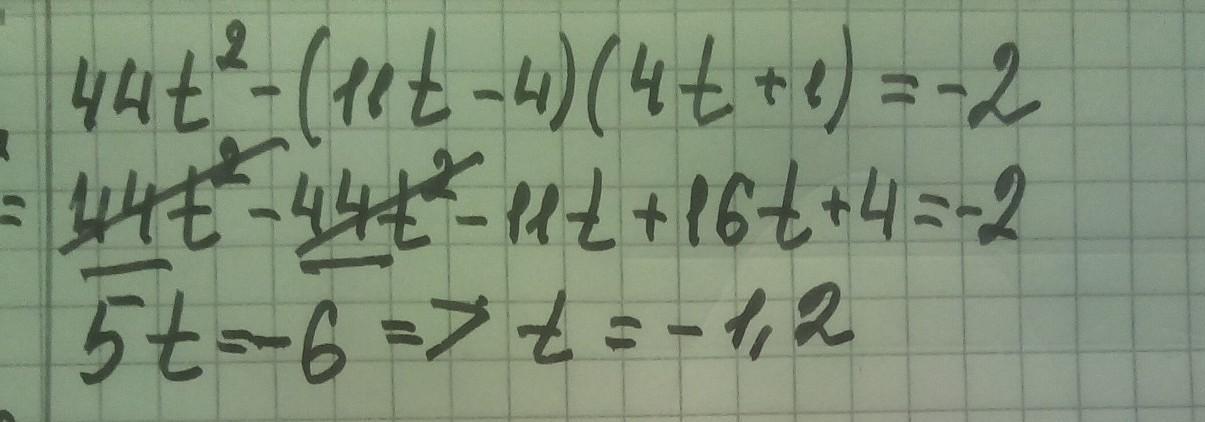 44t² - (11t - 4)(4t + 1) = -2
= 44t² - 44t² - 11t + 16t + 4 = -2
5t = -6 => t = -1,2